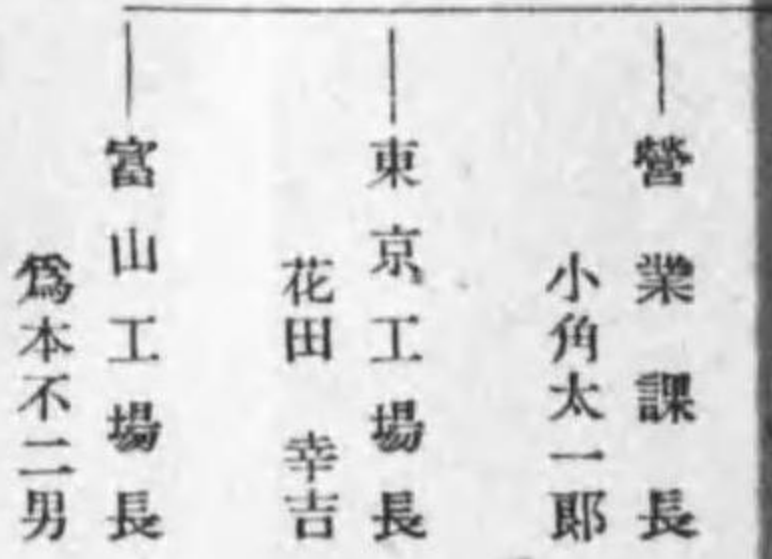 營業課長
小角太一郞
東京工場長
花田 幸吉
富山工場長
爲本不二男